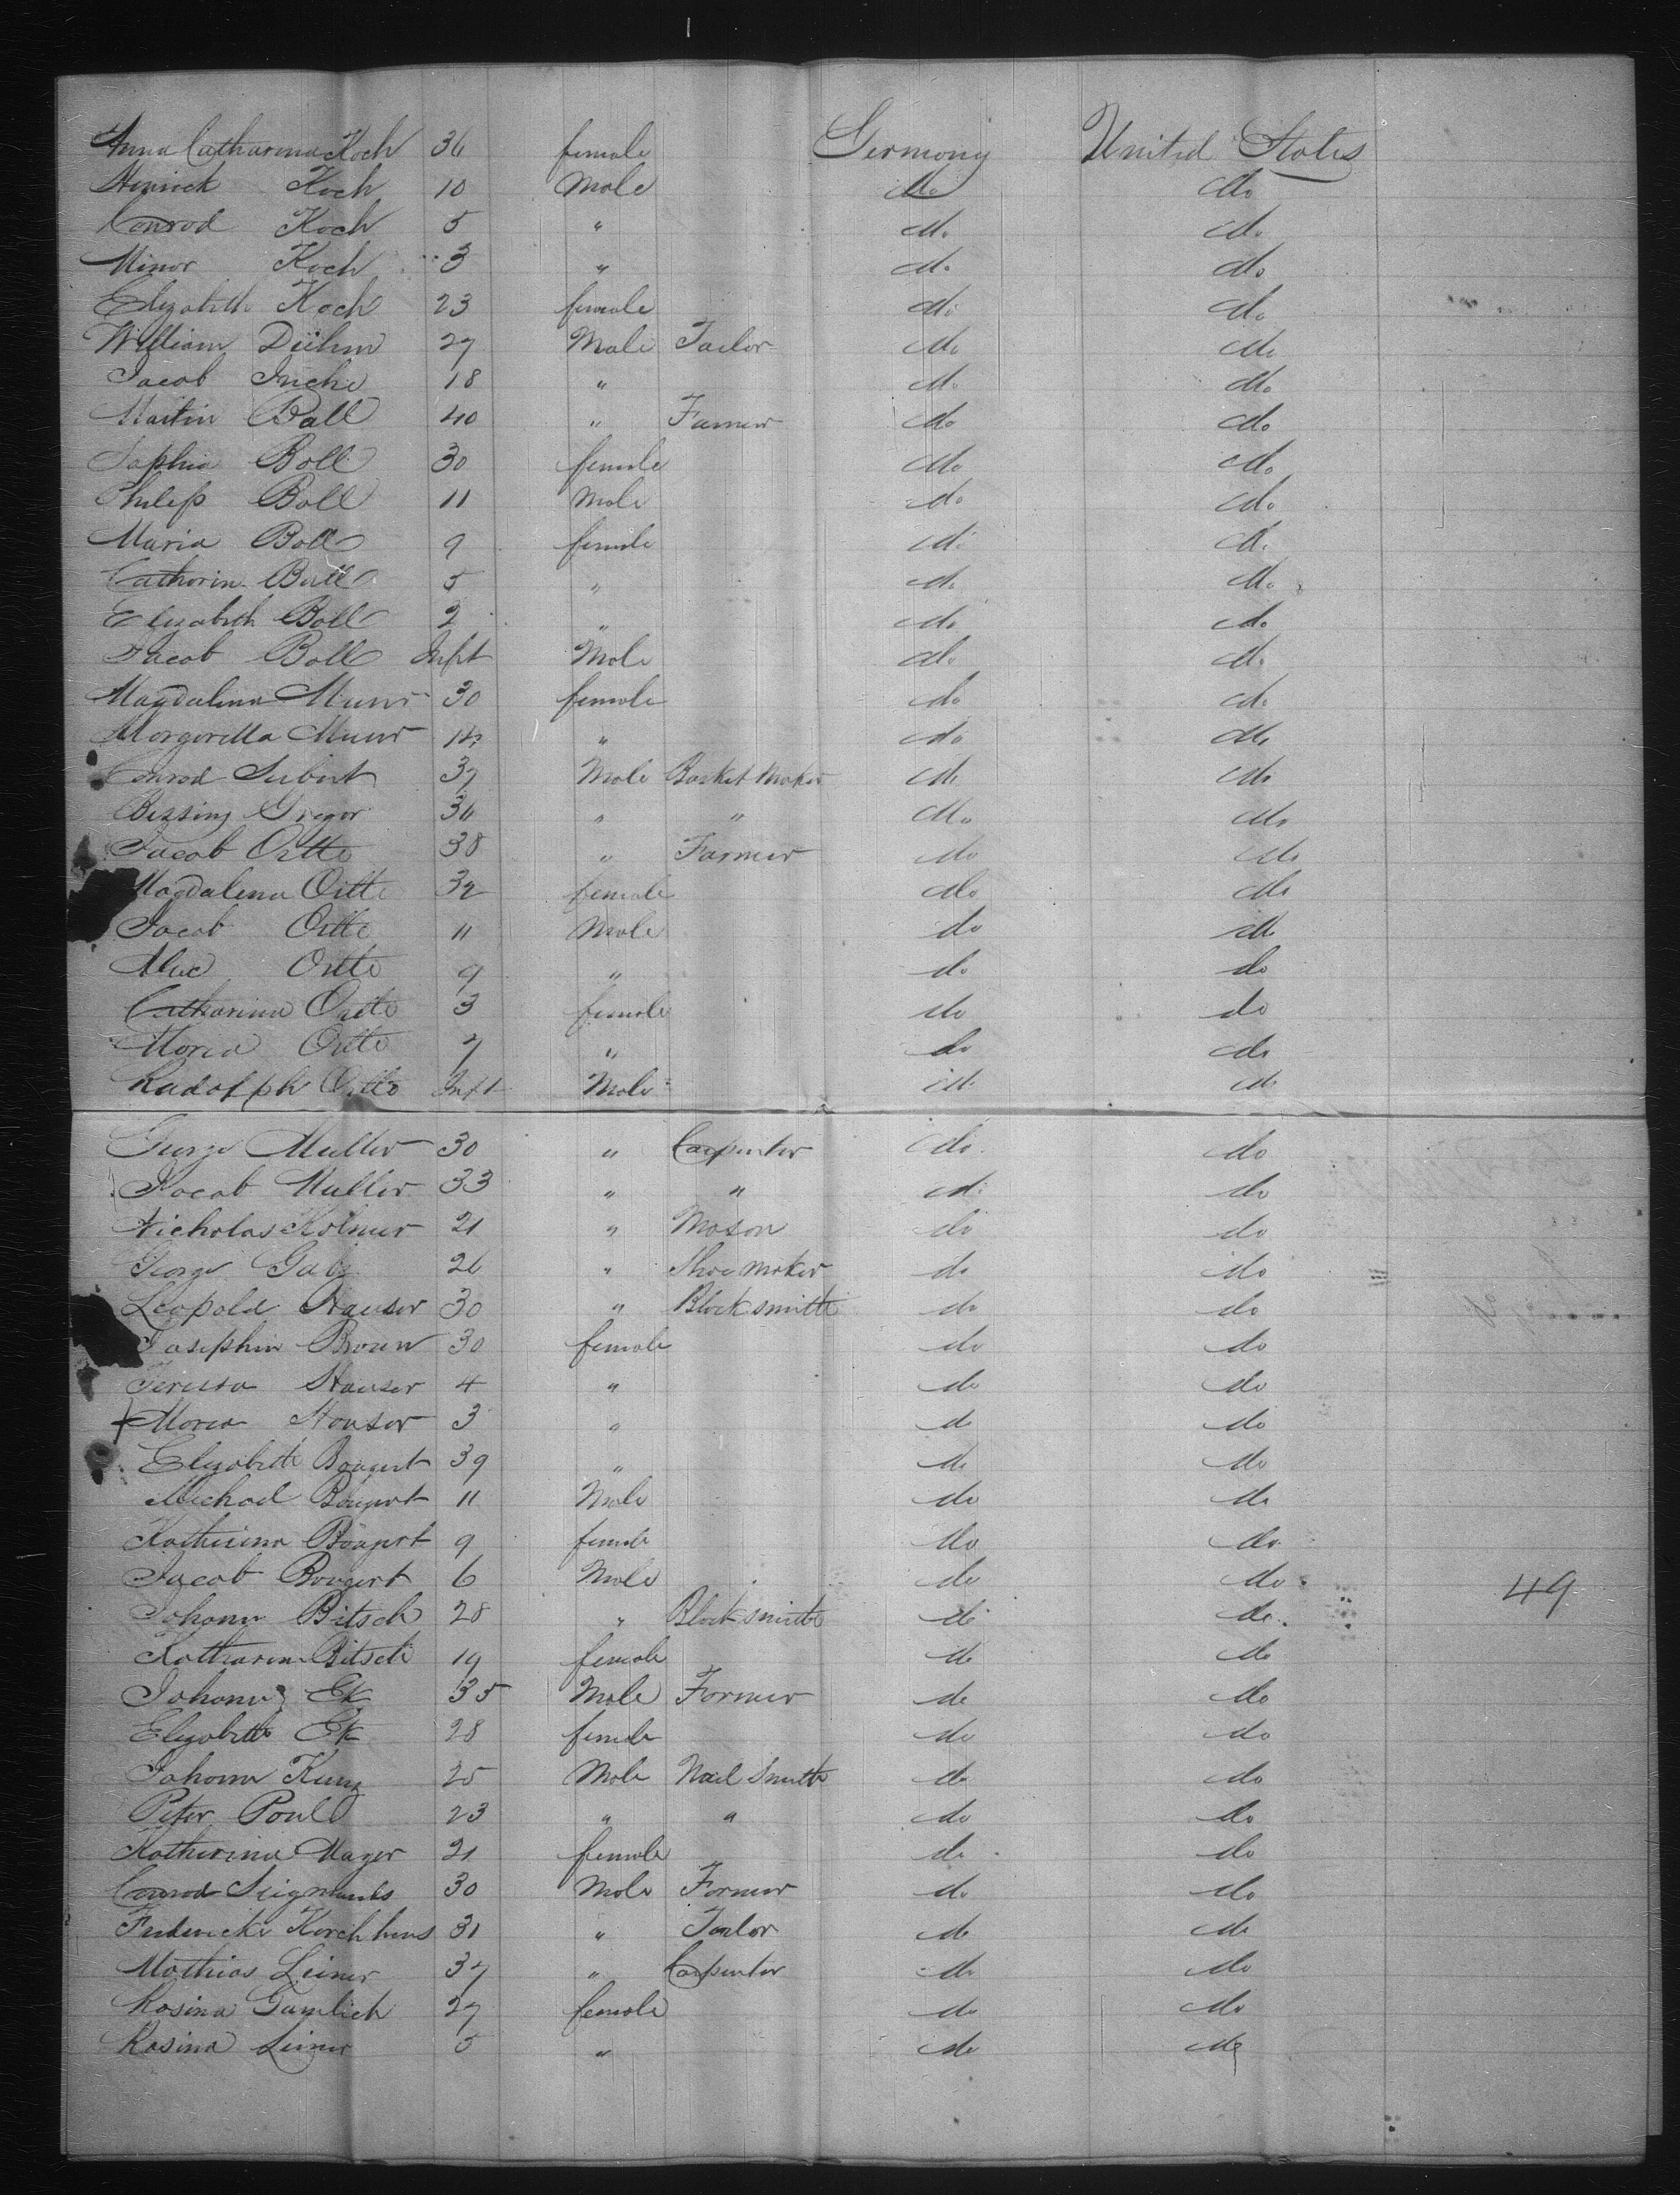 Anna Catharina Koch 36 female Germany United States
Henrick Koch 10 Male do do
Conrod Koch 5 " do do
Minor Koch 3 " do do
Elizabeth Koch 23 female do do
William Dühm 27 Male Tailor do do
Jacob 18 " do do
Martin Ball 40 " Farmer do do
Sophia Boll 30 female do do
Philip Boll 11 Male do do
Maria Boll 9 female do do
Catharin Boll 5 " do do
Elizabeth Boll 2 " do do
Jacob Boll Inft Male do do
Magdalina 30 female do do
Morgoretta 14 " do do
Conrod Seibert 37 Male Basket Maker do do
Bessing Gregor 36 " " do do
Jacob Ortte 38 " Farmer do do
Magdalena Ortte 32 female do do
Jacob Ortte 11 Male do do
Ortte 9 " do do
Catharina Ortte 3 female do do
Moria Ortte 7 " do do
Rudolph Ortte Inft Male do do
George Muller 30 " Carpenter do do
Jacob Muller 33 " " do do
Nicholas Kolmer 21 " Mason do do
George Gabj 26 " Shoe Maker do do
Leopold Hauser 30 " Blocksmith do do
Josephin Broun 30 female do do
Teresa Hauser 4 " do do
Moria Hauser 3 " do do
Elizabeth Bongert 39 " do do
Michael Bongert 11 Male do do
Katherina Bongert 9 female do do
Jacob Bongert 6 Male do do 49
Johann Bitsch 28 " Blocksmith do do
Katharina Bitsch 19 female do do
Johann Ek 35 Male Farmer do do
Elizabeth Ek 28 female do do
Johann Kunz 25 Male Nail Smith do do
Peter Poul 23 " " do do
Katherina Mayer 21 female do do
Conrod 30 Male Farmer do do
31 " Tailor do do
Mathias Leiner 37 " Carpenter do do
Rosina Gumlich 27 female do do
Rosina Leiner 5 " do do